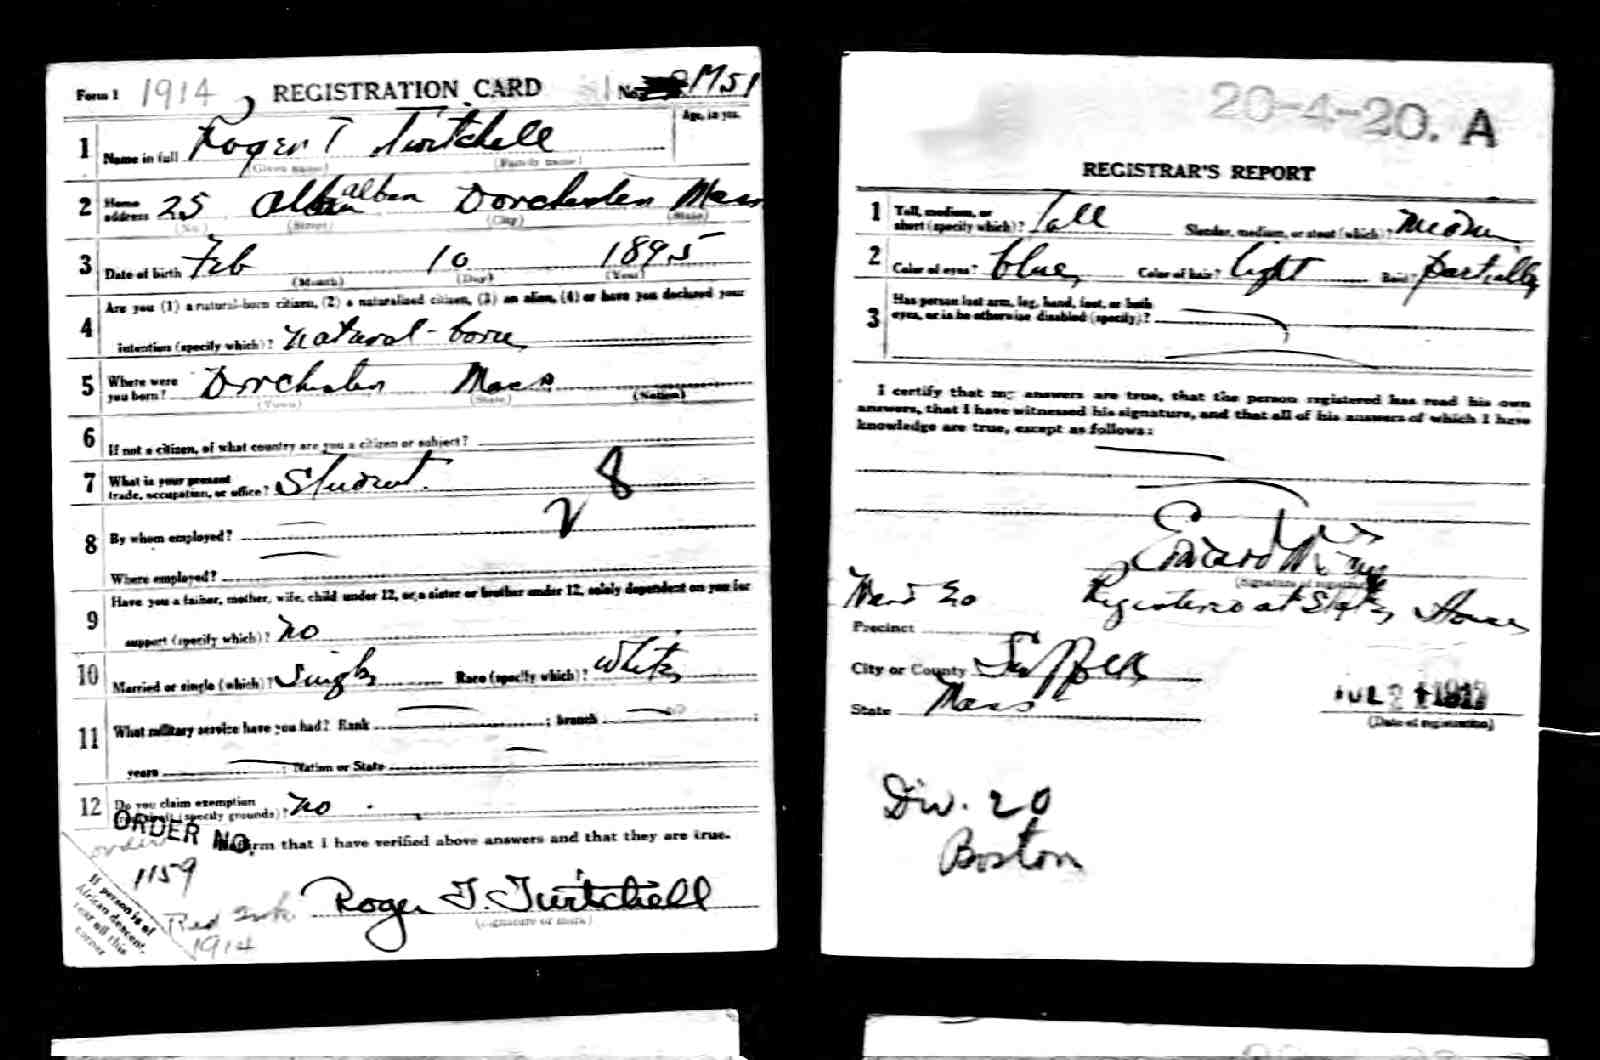 Form 1 1914 REGISTRATION CARD No. M51
1 Name in full Roger T Twitchell Age, in yrs.
(Given name) (Family name)
2 Home address 25 Alban Dorchester Mass
(No.) (Street) (City) (State)
3 Date of birth Feb 10 1895
(Month) (Day) (Year)
Are you (1) a natural-born citizen, (2) a naturalized citizen, (3) an alien, (4) or have you declared your
4 intention (specify which)? natural-born
5 Where were you born? Dorchester Mass
(Town) (State) (Nation)
6 If not a citizen, of what country are you a citizen or subject?
7 What is your present trade, occupation, or office? Student 8
8 By whom employed?
Where employed?
Have you a father, mother, wife, child under 12, or a sister or brother under 12, solely dependent on you for
9 support (specify which)? no
10 Married or single (which)? Single Race (specify which)? White
11 What military service have you had? Rank ; branch ;
years ; Nation or State
12 Do you claim exemption from draft (specify grounds)? no
ORDER NO.
I affirm that I have verified above answers and that they are true.
order
1159
Roger T. Twitchell
(Signature or mark)
If person is of African descent, tear off this corner
Red Ink
1914
20-4-20. A
REGISTRAR'S REPORT
1 Tall, medium, or short (specify which)? Tall Slender, medium, or stout (which)? medium
2 Color of eyes? blue Color of hair? light Bald? partially
3 Has person lost arm, leg, hand, foot, or both eyes, or is he otherwise disabled (specify)?
I certify that my answers are true, that the person registered has read his own
answers, that I have witnessed his signature, and that all of his answers of which I have
knowledge are true, except as follows:
(Signature of registrar)
Ward 20 Registered at State House
Precinct
City or County Suffolk
State Mass
(Date of registration)
Div. 20
Boston